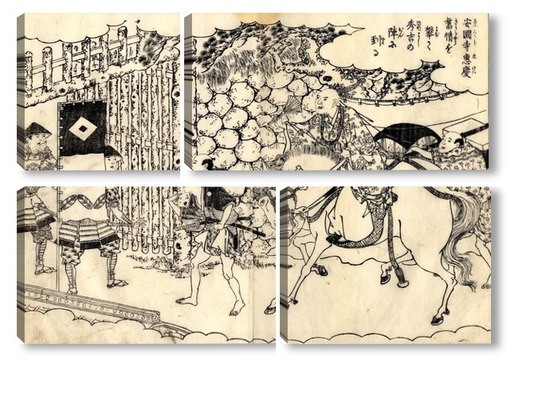 安國寺恵慶
舊情を
繋く
秀吉の
陣に
到る